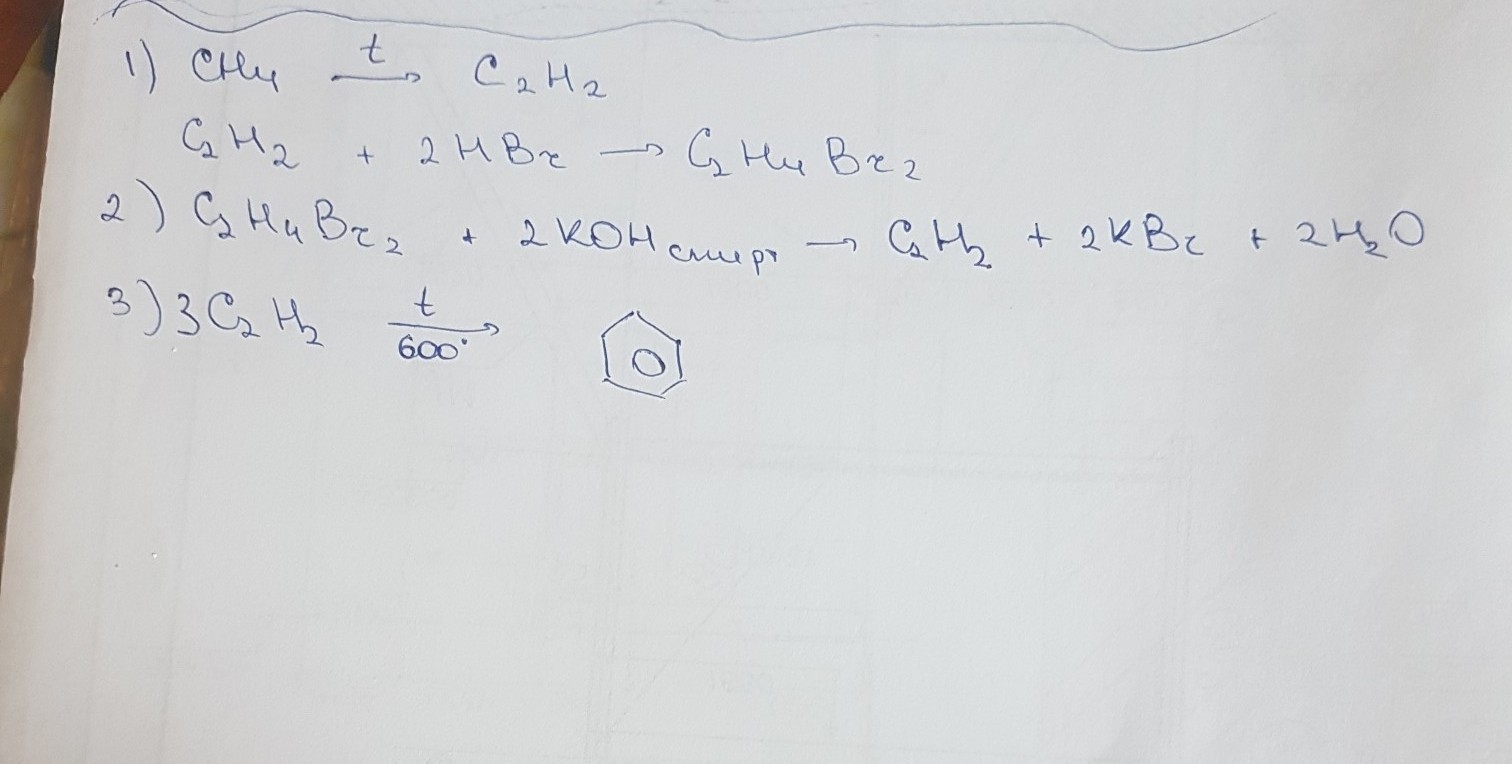 1) CH₄ t→ C₂H₂
C₂H₂ + 2HBr → C₂H₄Br₂
2) C₂H₄Br₂ + 2KOH спирт → C₂H₂ + 2KBr + 2H₂O
3) 3C₂H₂ t→ 600°